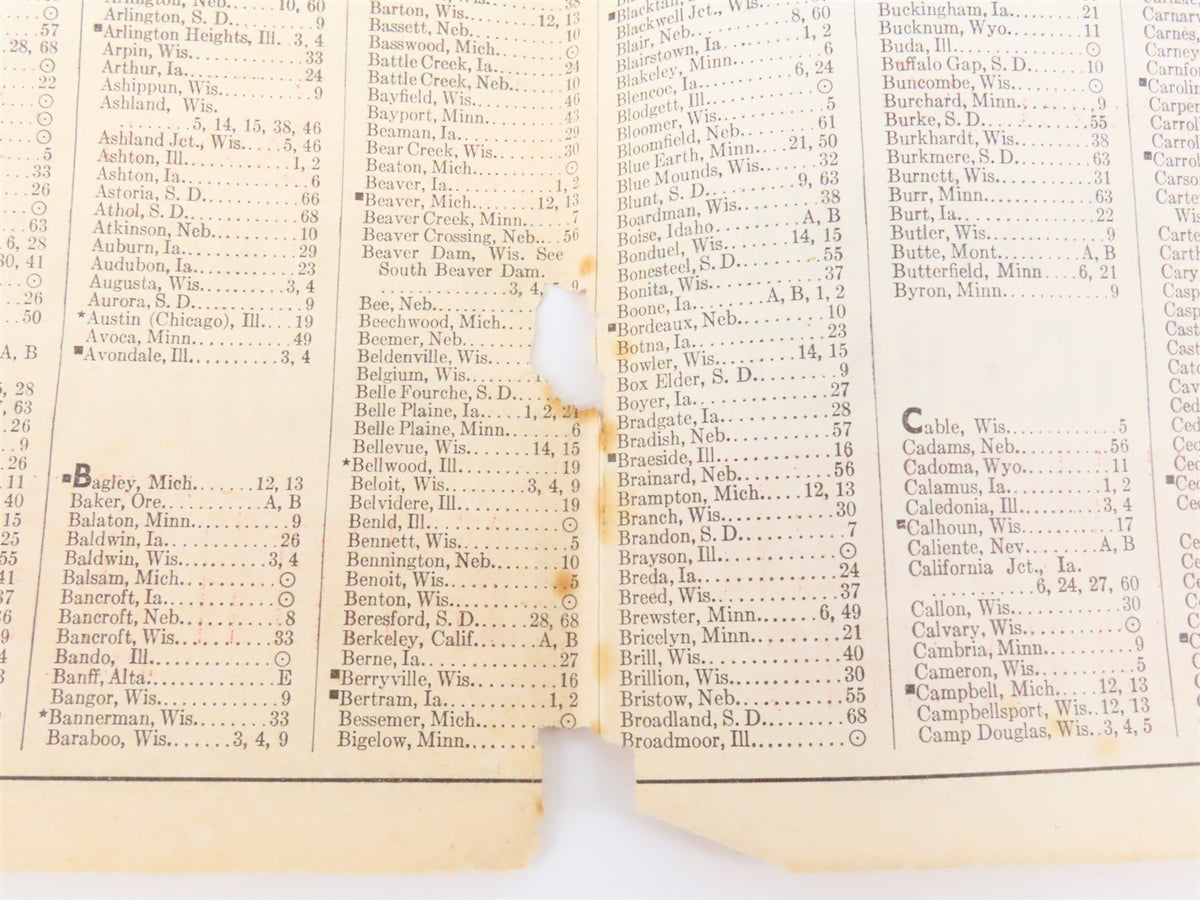 57
28, 68
⊙
22
⊙
⊙
⊙
5
33
26
⊙
63
6, 28
30, 41
⊙
26
50
A, B
5, 28
63
26
9
26
11
40
15
25
55
Arlington, Neb. 10, 60
Arlington, S. D. 9
▪Arlington Heights, Ill. 3, 4
Arpin, Wis. 33
Arthur, Ia. 24
Ashippun, Wis. 9
Ashland, Wis.
5, 14, 15, 38, 46
Ashland Jct., Wis. 5, 46
Ashton, Ill. 1, 2
Ashton, Ia. 6
Astoria, S. D. 66
Athol, S. D. 68
Atkinson, Neb. 10
Auburn, Ia. 29
Audubon, Ia. 23
Augusta, Wis. 3, 4
Aurora, S. D. 9
*Austin (Chicago), Ill. 19
Avoca, Minn. 49
▪Avondale, Ill. 3, 4
▪Bagley, Mich. 12, 13
Baker, Ore. A, B
Balaton, Minn. 9
Baldwin, Ia. 26
Baldwin, Wis. 3, 4
Balsam, Mich. ⊙
Bancroft, Ia. ⊙
Bancroft, Neb. 8
Bancroft, Wis. 33
Bando, Ill. ⊙
Banff, Alta. E
Bangor, Wis. 9
*Bannerman, Wis. 33
Baraboo, Wis. 3, 4, 9
Barton, Wis. 12, 13
Bassett, Neb. 10
Basswood, Mich. ⊙
Battle Creek, Ia. 24
Battle Creek, Neb. 10
Bayfield, Wis. 46
Bayport, Minn. 43
Beaman, Ia. 29
Bear Creek, Wis. 30
Beaton, Mich. ⊙
Beaver, Ia. 1, 2
▪Beaver, Mich. 12, 13
Beaver Creek, Minn. 7
Beaver Crossing, Neb. 56
Beaver Dam, Wis. See
South Beaver Dam.
3, 4, 9
Bee, Neb.
Beechwood, Mich.
Beemer, Neb.
Beldenville, Wis.
Belgium, Wis.
Belle Fourche, S. D.
Belle Plaine, Ia. 1, 2, 21
Belle Plaine, Minn. 6
Bellevue, Wis. 14, 15
*Bellwood, Ill. 19
Beloit, Wis. 3, 4, 9
Belvidere, Ill. 19
Benld, Ill. ⊙
Bennett, Wis. 5
Bennington, Neb. 10
Benoit, Wis. 5
Benton, Wis. ⊙
Beresford, S. D. 28, 68
Berkeley, Calif. A, B
Berne, Ia. 27
▪Berryville, Wis. 16
▪Bertram, Ia. 1, 2
Bessemer, Mich. ⊙
Bigelow, Minn.
Blackwell Jct., Wis.
Blair, Neb. 8, 60
Blairstown, Ia. 1, 2
Blakeley, Minn. 6
Blencoe, Ia. 6, 24
Blodgett, Ill. ⊙
Bloomer, Wis. 5
Bloomfield, Neb. 61
Blue Earth, Minn. 21, 50
Blue Mounds, Wis. 32
Blunt, S. D. 9, 63
Boardman, Wis. 38
Boise, Idaho A, B
Bonduel, Wis. 14, 15
Bonesteel, S. D. 55
Bonita, Wis. 37
Boone, Ia. A, B, 1, 2
▪Bordeaux, Neb. 10
Botna, Ia. 23
Bowler, Wis. 14, 15
Box Elder, S. D. 9
Boyer, Ia. 27
Bradgate, Ia. 28
Bradish, Neb. 57
▪Braeside, Ill. 16
Brainard, Neb. 56
Brampton, Mich. 12, 13
Branch, Wis. 30
Brandon, S. D. 7
Brayson, Ill. ⊙
Breda, Ia. 24
Breed, Wis. 37
Brewster, Minn. 6, 49
Bricelyn, Minn. 21
Brill, Wis. 40
Brillion, Wis. 30
Bristow, Neb. 55
Broadland, S. D. 68
Broadmoor, Ill. ⊙
Buckingham, Ia. 21
Bucknum, Wyo. 11
Buda, Ill. ⊙
Buffalo Gap, S. D. 10
Buncombe, Wis. ⊙
Burchard, Minn. 9
Burke, S. D. 55
Burkhardt, Wis. 38
Burkmere, S. D. 63
Burnett, Wis. 31
Burr, Minn. 63
Burt, Ia. 22
Butler, Wis. 9
Butte, Mont. A, B
Butterfield, Minn. 6, 21
Byron, Minn. 9
Cable, Wis. 5
Cadams, Neb. 56
Cadoma, Wyo. 11
Calamus, Ia. 1, 2
Caledonia, Ill. 3, 4
▪Calhoun, Wis. 17
Caliente, Nev. A, B
California Jct., Ia.
6, 24, 27, 60
Callon, Wis. 30
Calvary, Wis. ⊙
Cambria, Minn. 9
Cameron, Wis. 5
▪Campbell, Mich. 12, 13
Campbellsport, Wis. 12, 13
Camp Douglas, Wis. 3, 4, 5